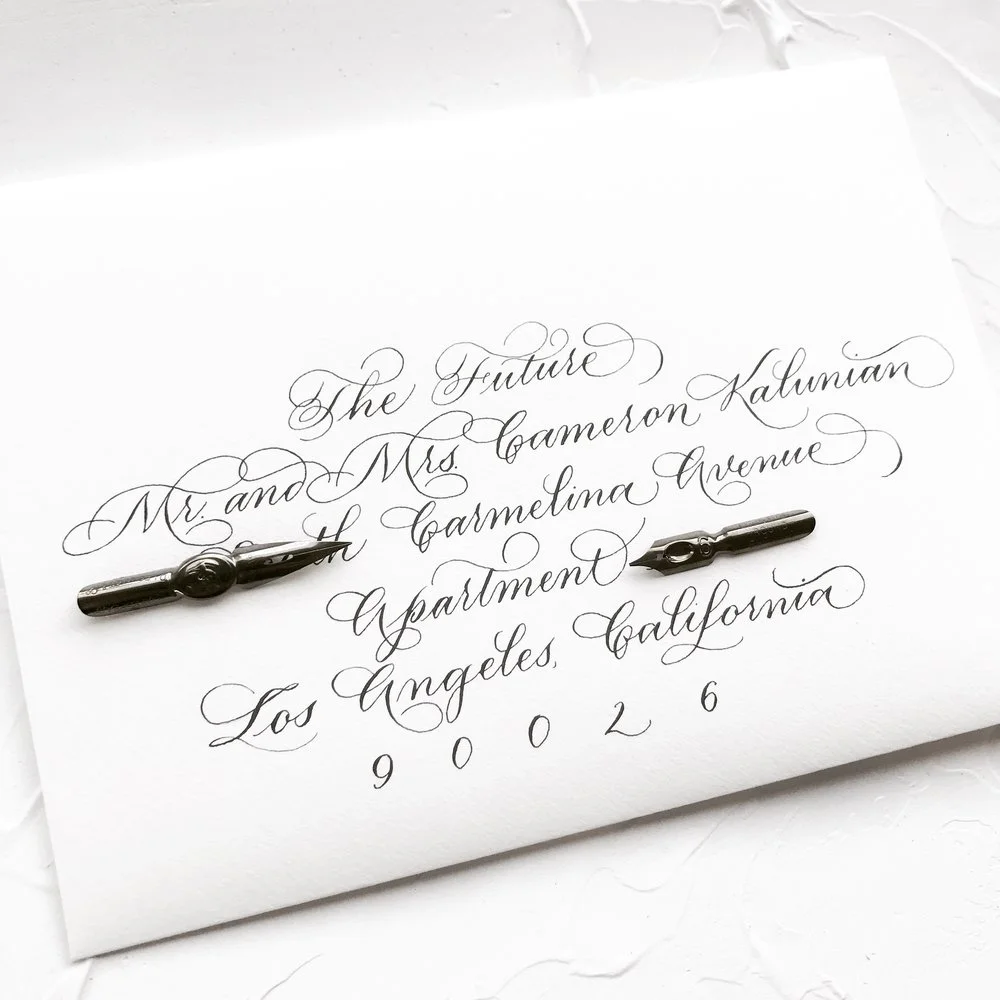 The Future
Mr. and Mrs. Cameron Kalunian
th Carmelina Avenue
Apartment
Los Angeles, California
90026